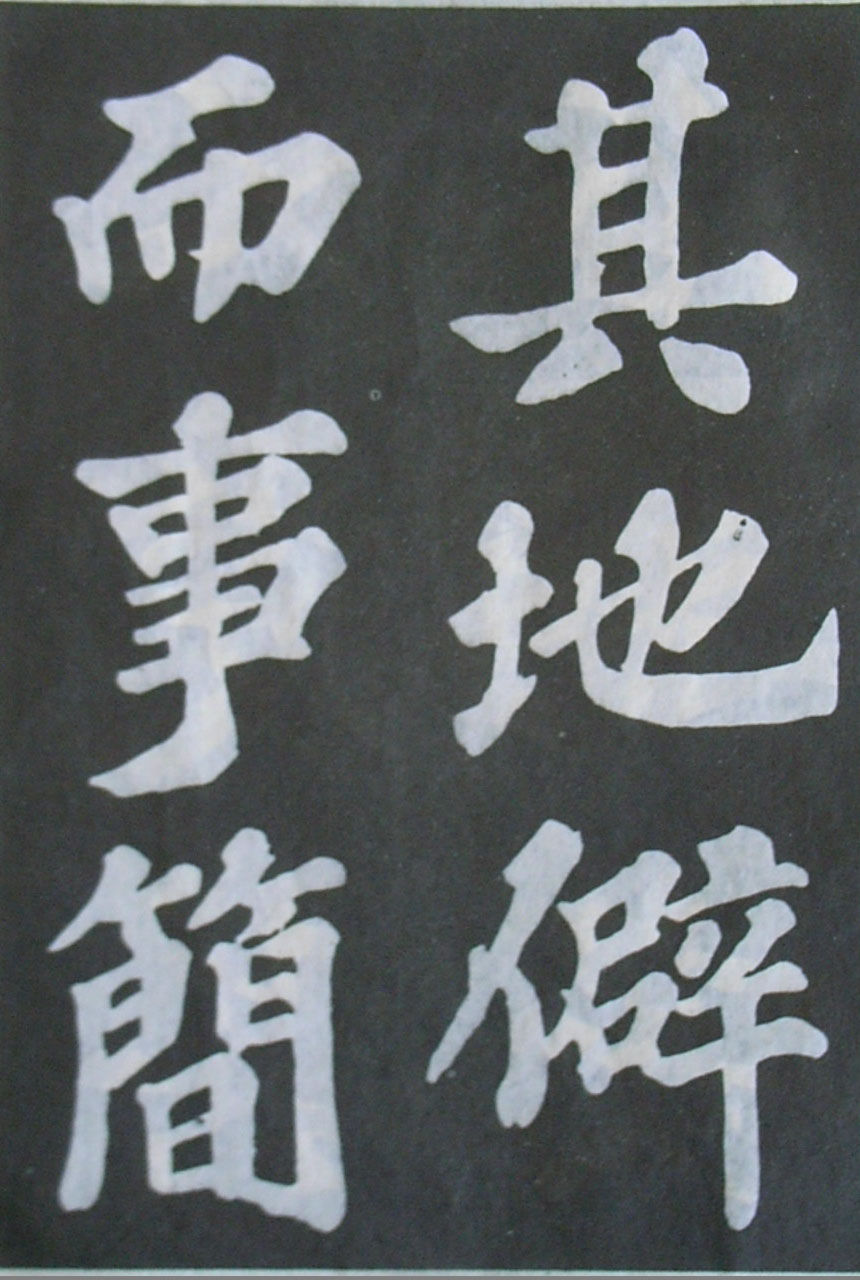 其地僻
而事簡